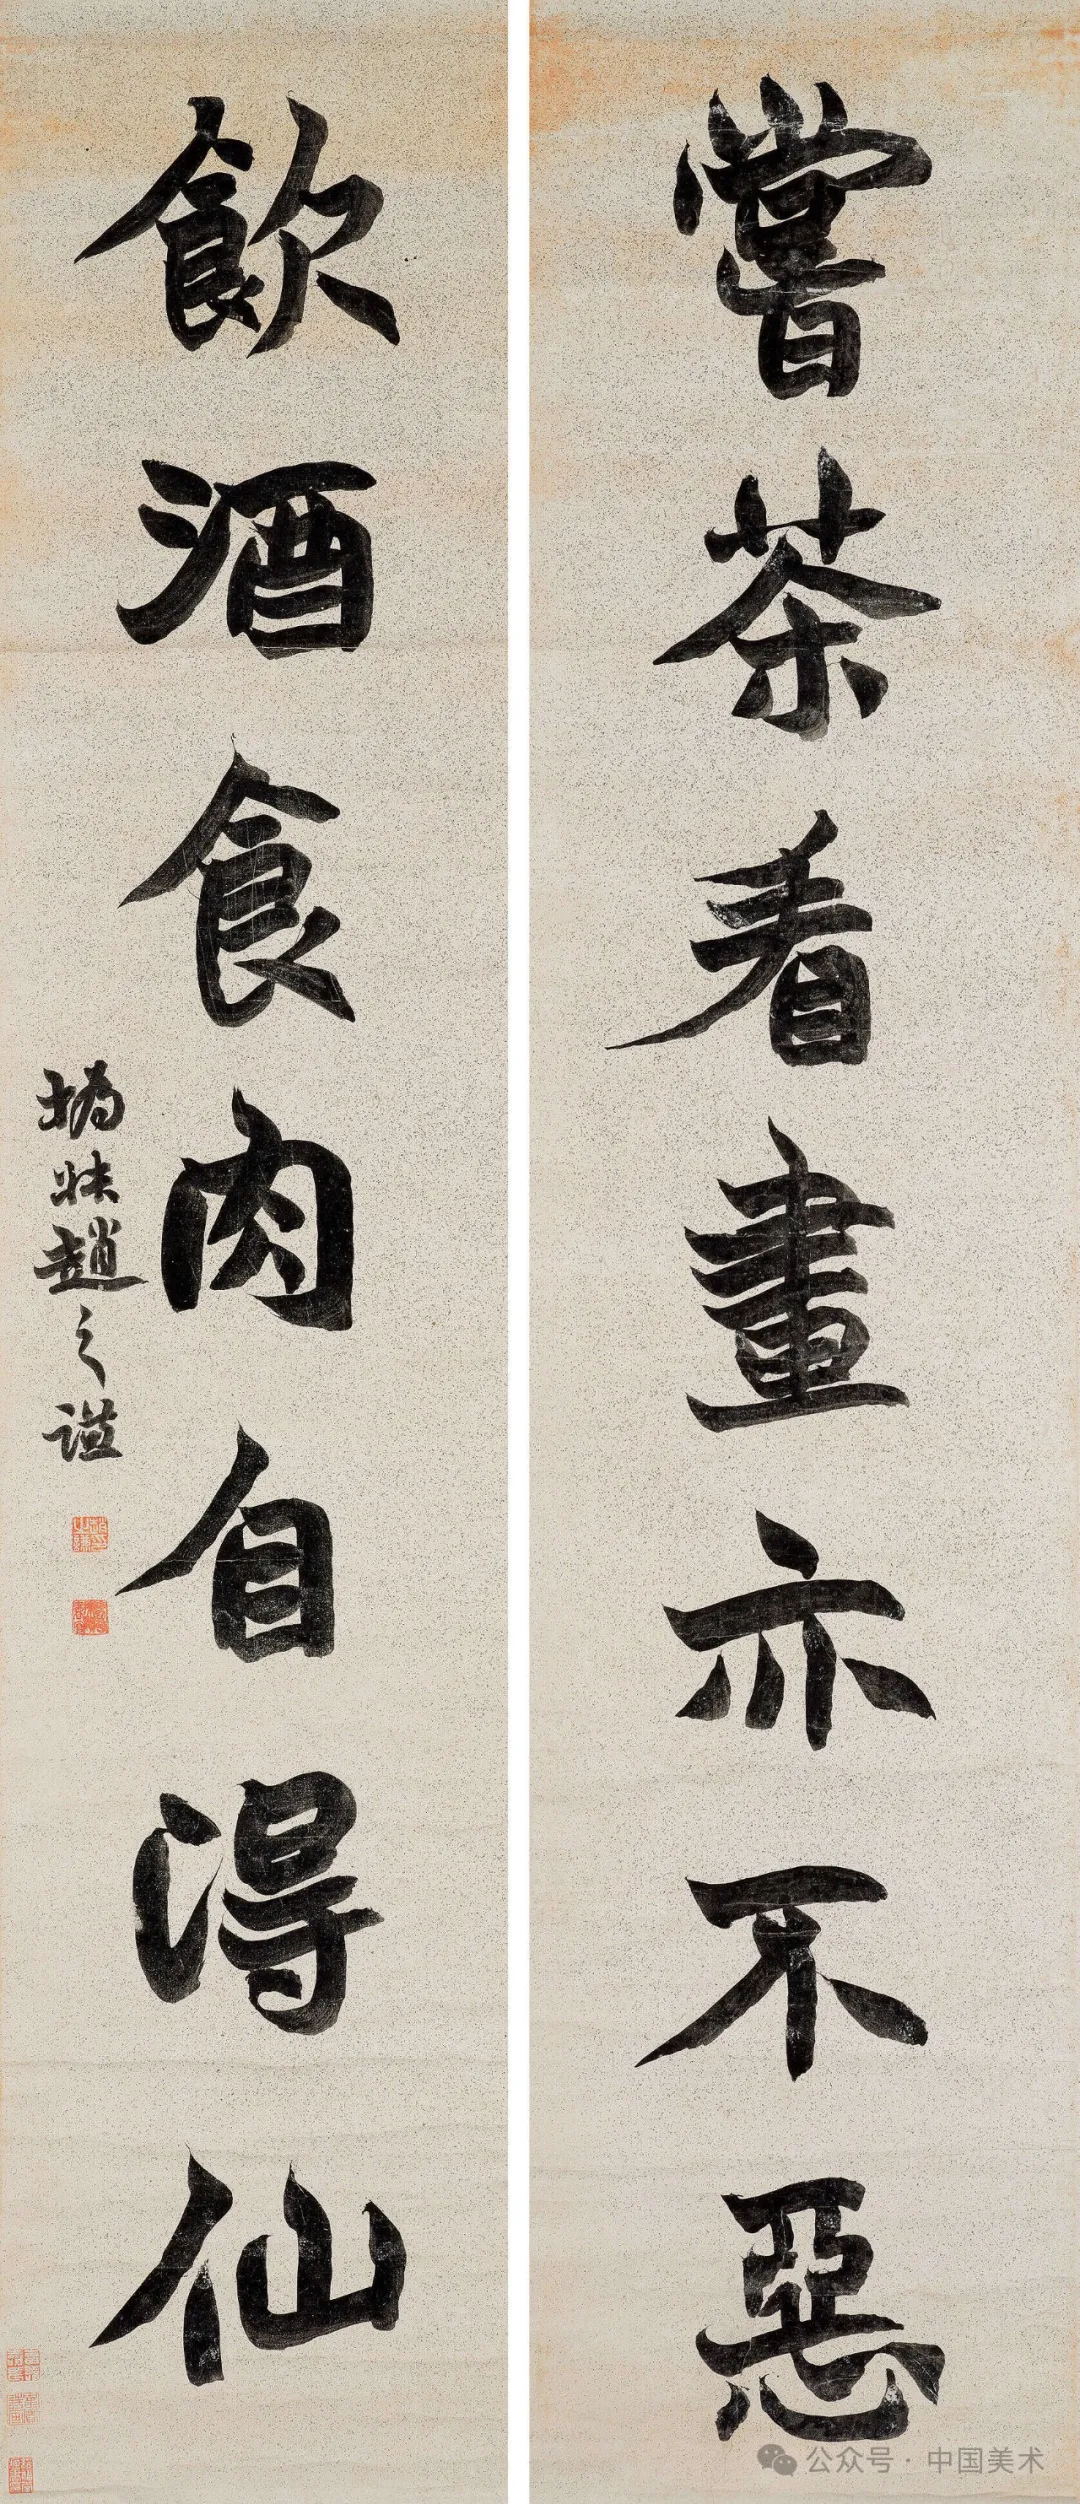 嘗茶看畫亦不惡
飲酒食肉自得仙
撝叔趙之謙
公众号·中国美术